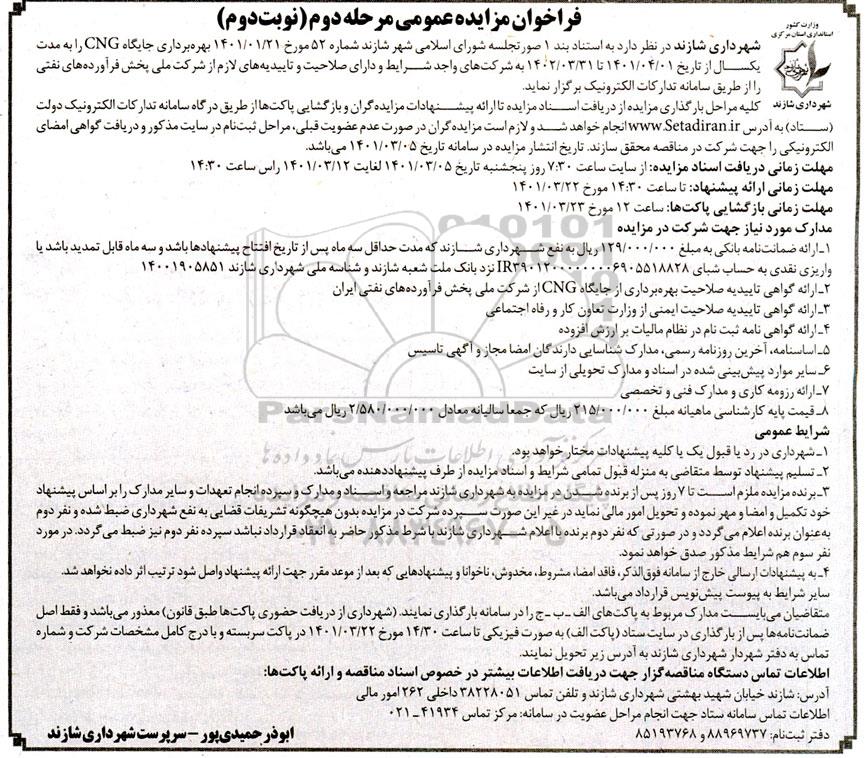 فراخوان مزایده عمومی مرحله دوم (نوبت دوم)
وزارت کشور
استانداری استان مرکزی
شهرداری شازند
شهرداری شازند در نظر دارد به استناد بند ۱ صورتجلسه شورای اسلامی شهر شازند شماره ۵۲ مورخ ۱۴۰۱/۰۱/۲۱ بهره‌برداری جایگاه CNG را به مدت
یکسال از تاریخ ۱۴۰۱/۰۴/۰۱ تا ۱۴۰۲/۰۳/۳۱ به شرکت‌های واجد شرایط و دارای صلاحیت و تاییدیه‌های لازم از شرکت ملی پخش فرآورده‌های نفتی
را از طریق سامانه تدارکات الکترونیک برگزار نماید.
کلیه مراحل بارگذاری مزایده از دریافت اسناد مزایده تا ارائه پیشنهادات مزایده‌گران و بازگشایی پاکت‌ها از طریق درگاه سامانه تدارکات الکترونیک دولت
(ستاد) به آدرس www.Setadiran.ir انجام خواهد شد و لازم است مزایده‌گران در صورت عدم عضویت قبلی، مراحل ثبت‌نام در سایت مذکور و دریافت گواهی امضای
الکترونیکی را جهت شرکت در مناقصه محقق سازند. تاریخ انتشار مزایده در سامانه تاریخ ۱۴۰۱/۰۳/۰۵ می‌باشد.
مهلت زمانی دریافت اسناد مزایده: از سایت ساعت ۷:۳۰ روز پنجشنبه تاریخ ۱۴۰۱/۰۳/۰۵ لغایت ۱۴۰۱/۰۳/۱۲ راس ساعت ۱۴:۳۰
مهلت زمانی ارائه پیشنهاد: تا ساعت ۱۴:۳۰ مورخ ۱۴۰۱/۰۳/۲۲
مهلت زمانی بازگشایی پاکت‌ها: ساعت ۱۲ مورخ ۱۴۰۱/۰۳/۲۳
مدارک مورد نیاز جهت شرکت در مزایده
۱ـ ارائه ضمانت‌نامه بانکی به مبلغ ۱۲۹/۰۰۰/۰۰۰ ریال به نفع شهرداری شازند که مدت حداقل سه ماه پس از تاریخ افتتاح پیشنهادها باشد و سه ماه قابل تمدید باشد یا
واریزی نقدی به حساب شبای IR۳۹۰۱۲۰۰۰۰۰۰۰۰۶۹۰۵۵۱۸۸۲۸ نزد بانک ملت شعبه شازند و شناسه ملی شهرداری شازند ۱۴۰۰۱۹۰۵۸۵۱
۲ـ ارائه گواهی تاییدیه صلاحیت بهره‌برداری از جایگاه CNG از شرکت ملی پخش فرآورده‌های نفتی ایران
۳ـ ارائه گواهی تاییدیه صلاحیت ایمنی از وزارت تعاون کار و رفاه اجتماعی
۴ـ ارائه گواهی نامه ثبت نام در نظام مالیات بر ارزش افزوده
۵ـ اساسنامه، آخرین روزنامه رسمی، مدارک شناسایی دارندگان امضا مجاز و آگهی تاسیس
۶ـ سایر موارد پیش‌بینی شده در اسناد و مدارک تحویلی از سایت
۷ـ ارائه رزومه کاری و مدارک فنی و تخصصی
۸ـ قیمت پایه کارشناسی ماهیانه مبلغ ۲۱۵/۰۰۰/۰۰۰ ریال که جمعا سالیانه معادل ۲/۵۸۰/۰۰۰/۰۰۰ ریال می‌باشد
شرایط عمومی
۱ـ شهرداری در رد یا قبول یک یا کلیه پیشنهادات مختار خواهد بود.
۲ـ تسلیم پیشنهاد توسط متقاضی به منزله قبول تمامی شرایط و اسناد مزایده از طرف پیشنهاددهنده می‌باشد.
۳ـ برنده مزایده ملزم است تا ۷ روز پس از برنده شدن در مزایده به شهرداری شازند مراجعه و اسناد و مدارک و سپرده انجام تعهدات و سایر مدارک را بر اساس پیشنهاد
خود تکمیل و امضا و مهر نموده و تحویل امور مالی نماید در غیر این صورت سپرده شرکت در مزایده بدون هیچگونه تشریفات قضایی به نفع شهرداری ضبط شده و نفر دوم
به‌عنوان برنده اعلام می‌گردد و در صورتی که نفر دوم برنده با اعلام شهرداری شازند با شرط مذکور حاضر به انعقاد قرارداد نباشد سپرده نفر دوم نیز ضبط می‌گردد. در مورد
نفر سوم هم شرایط مذکور صدق خواهد نمود.
۴ـ به پیشنهادات ارسالی خارج از سامانه فوق‌الذکر، فاقد امضا، مشروط، مخدوش، ناخوانا و پیشنهادهایی که بعد از موعد مقرر جهت ارائه پیشنهاد واصل شود ترتیب اثر داده نخواهد شد.
سایر شرایط به پیوست پیش‌نویس قرارداد می‌باشد.
متقاضیان می‌بایست مدارک مربوط به پاکت‌های الف ـ ب ـ ج را در سامانه بارگذاری نمایند. (شهرداری از دریافت حضوری پاکت‌ها طبق قانون) معذور می‌باشد و فقط اصل
ضمانت‌نامه‌ها پس از بارگذاری در سایت ستاد (پاکت الف) به صورت فیزیکی تا ساعت ۱۴/۳۰ مورخ ۱۴۰۱/۰۳/۲۲ در پاکت سربسته و با درج کامل مشخصات شرکت و شماره
تماس به دفتر شهردار شهرداری شازند به آدرس زیر تحویل نمایند.
اطلاعات تماس دستگاه مناقصه‌گزار جهت دریافت اطلاعات بیشتر در خصوص اسناد مناقصه و ارائه پاکت‌ها:
آدرس: شازند خیابان شهید بهشتی شهرداری شازند و تلفن تماس ۳۸۲۲۸۰۵۱ داخلی ۲۶۲ امور مالی
اطلاعات تماس سامانه ستاد جهت انجام مراحل عضویت در سامانه: مرکز تماس ۴۱۹۳۴ ـ ۰۲۱
دفتر ثبت‌نام: ۸۸۹۶۹۷۳۷ و ۸۵۱۹۳۷۶۸
ابوذر حمیدی‌پور – سرپرست شهرداری شازند
ParsNamadData